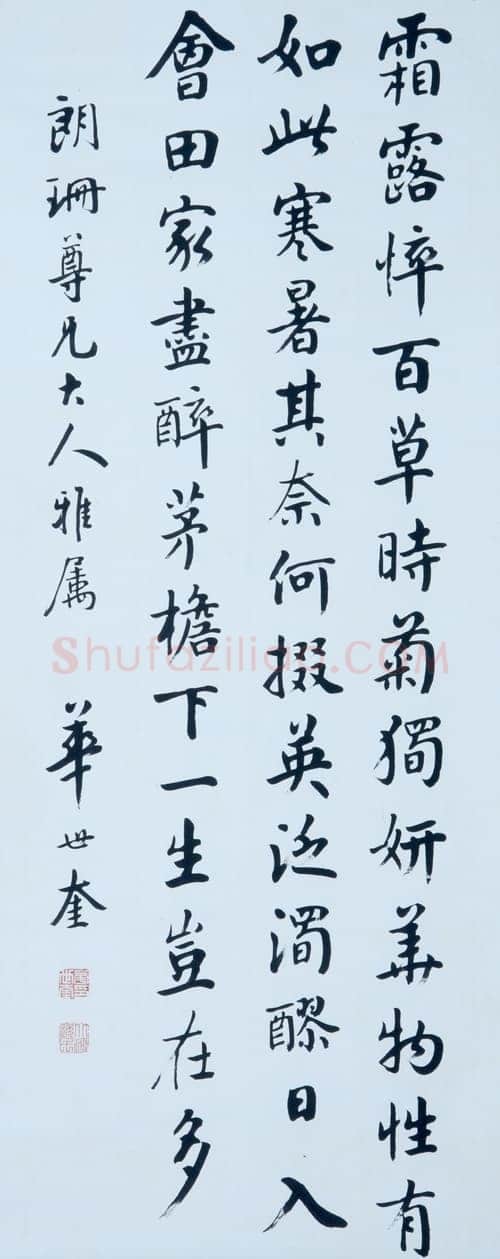 霜露悴百草時菊獨妍華物性有
如此寒暑其奈何掇英泛濁醪日入
會田家盡醉茅檐下一生豈在多
朗珊尊兄大人雅属 華世奎
Shufaziliao.COM